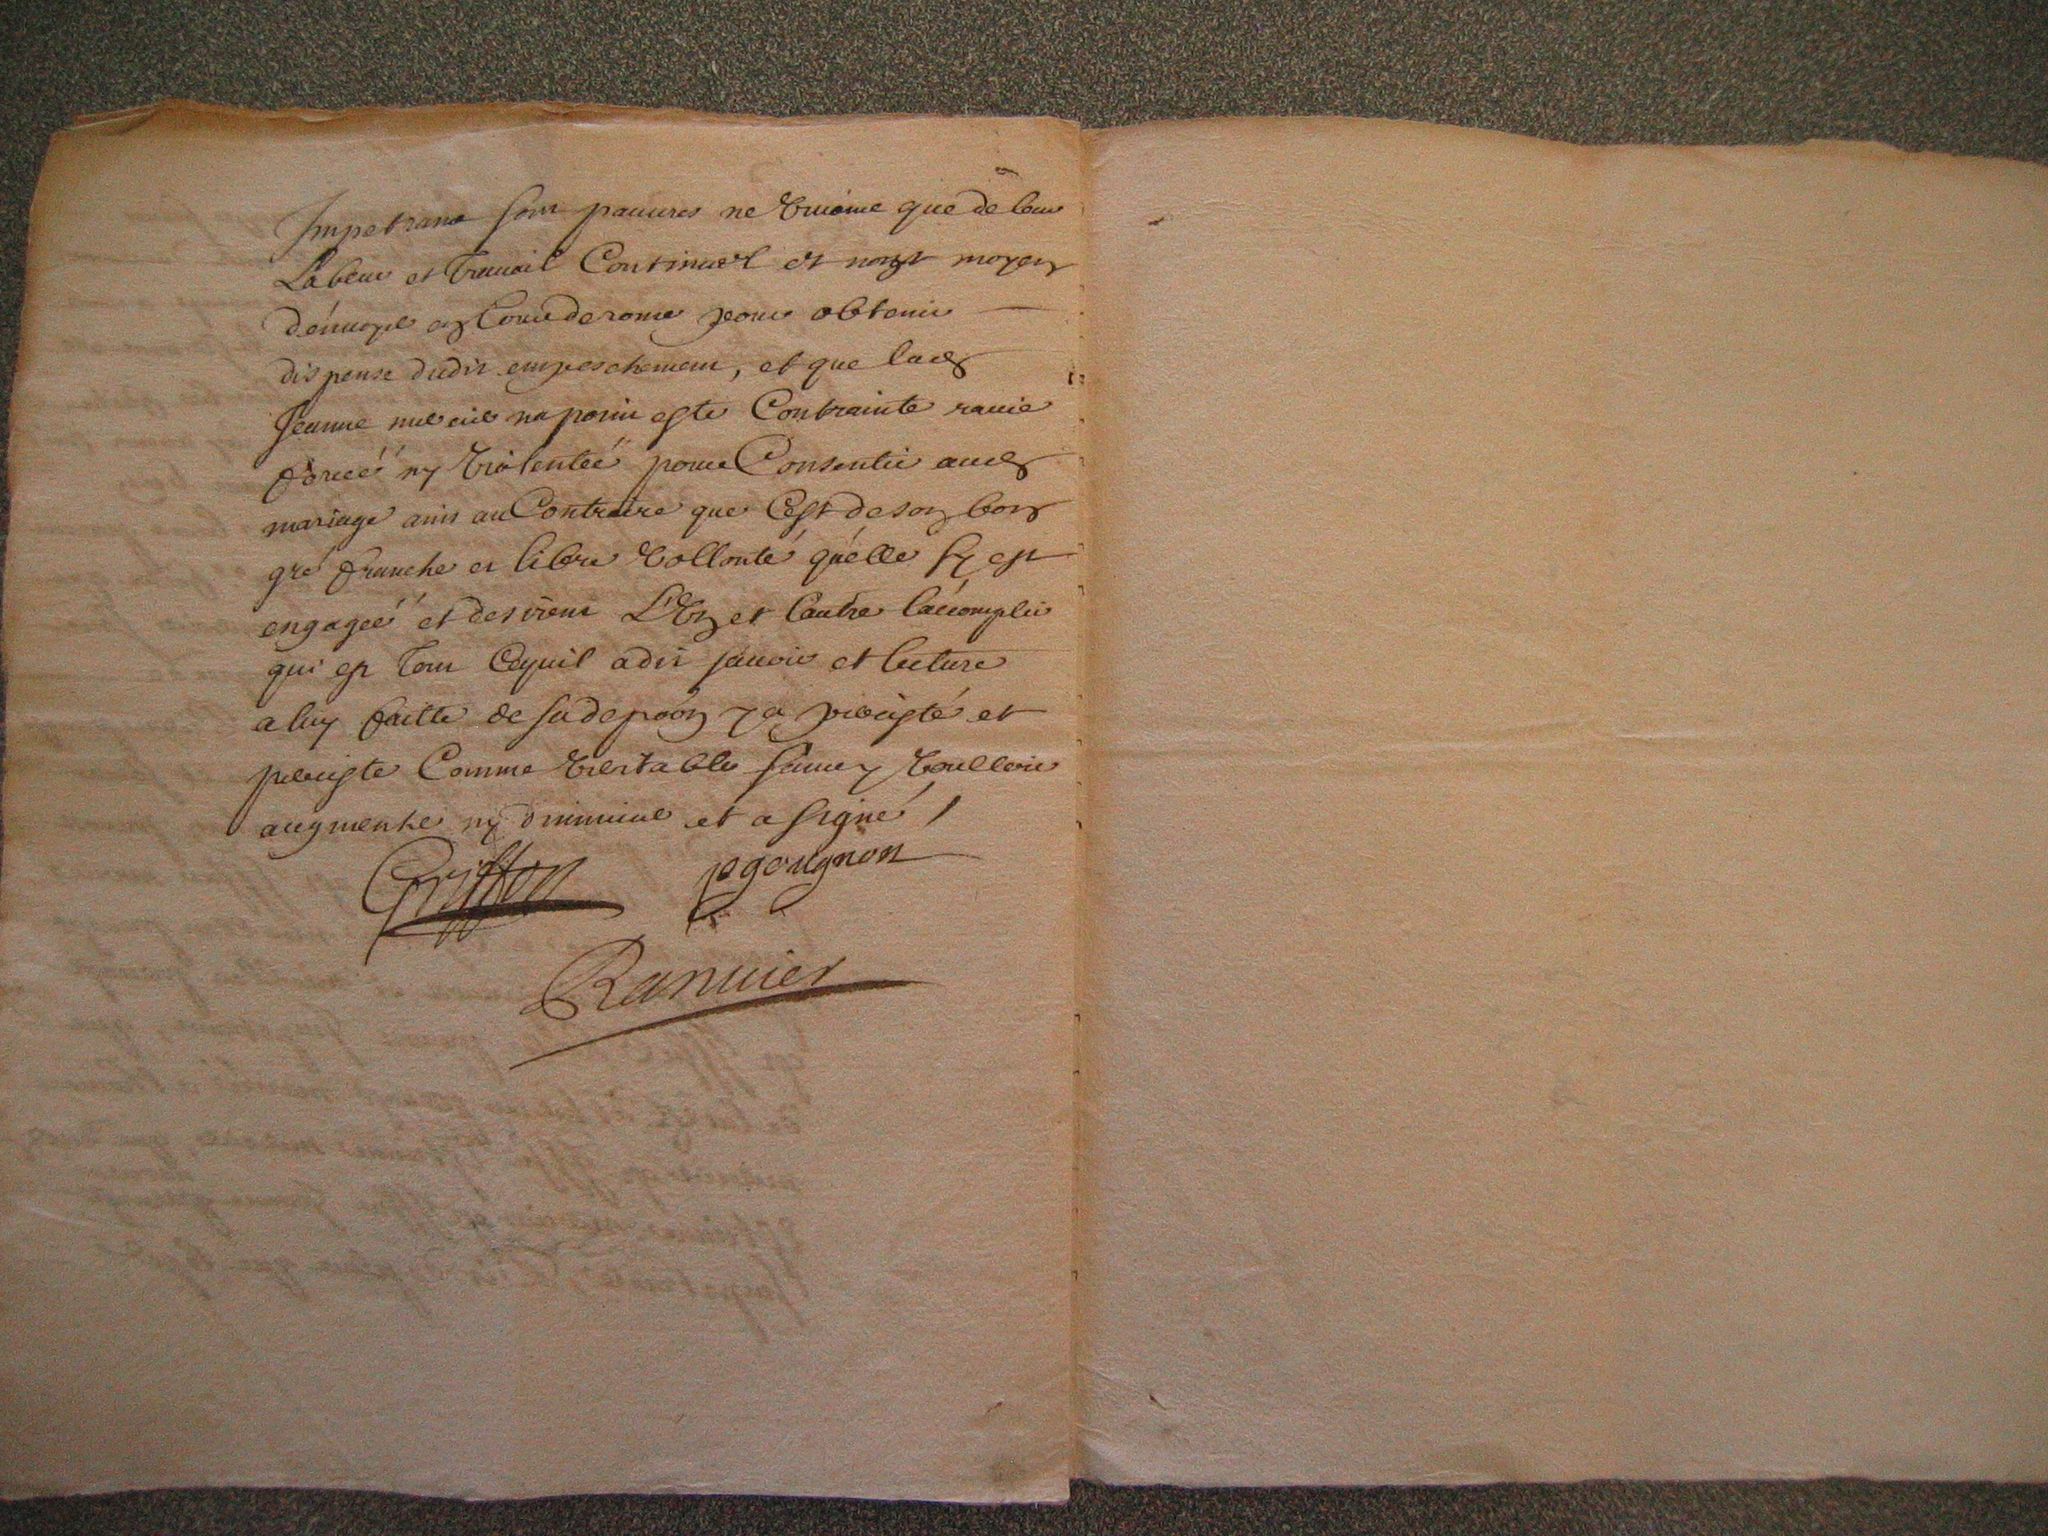 Impetrans sont pauures ne viuanr que de leur
Labeur et trauail Continuel et nont moyen
d'énuoyer en Cour de rome pour obtenir
dispense dudit empeschement, et que lad
Jeanne na point esté Contrainte rauie
forcéé ny violentéé pour Consentir aud
mariage ains au Contraire que C'est de son bon
gré franche et libre vollonté qu'elle sy est
engagéé et desirent L'Vn et Lautre L'accomplir
qui est tout Cequil adit sauoir et lecture
a luy faitte de sa depoõn y a percisté et
perciste Comme veritable sans y voulloir
augmenter ny diminuer et a signé /
Griffon pgougnon
Ranuier